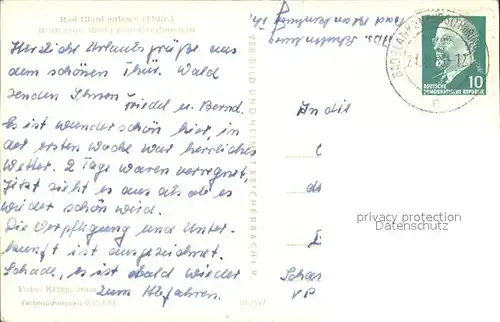 Bad Blankenburg (Thür.)
Blick vom
Herzliche Urlaubsgrüße aus
dem schönen Thür. Wald
senden Ihnen
Friedel u. Bernd.
Es ist wunderschön hier, in
der ersten Woche war herrliches
Wetter. 2 Tage waren verregnet,
Jetzt sieht es aus als ob es
wieder schön wird.
Die Verpflegung und Unter-
kunft ist ausgezeichnet.
Schade, es ist bald wieder
zum Abfahren.
Foto: Krieg, Jena
VERB BILD UND HEIMAT REICHENBACH I. V.
Bad Blankenburg
BAD BLANK
DEUTSCHE
DEMOKRATISCHE REPUBLIK
10
An die
VP
privacy protection
Datenschutz